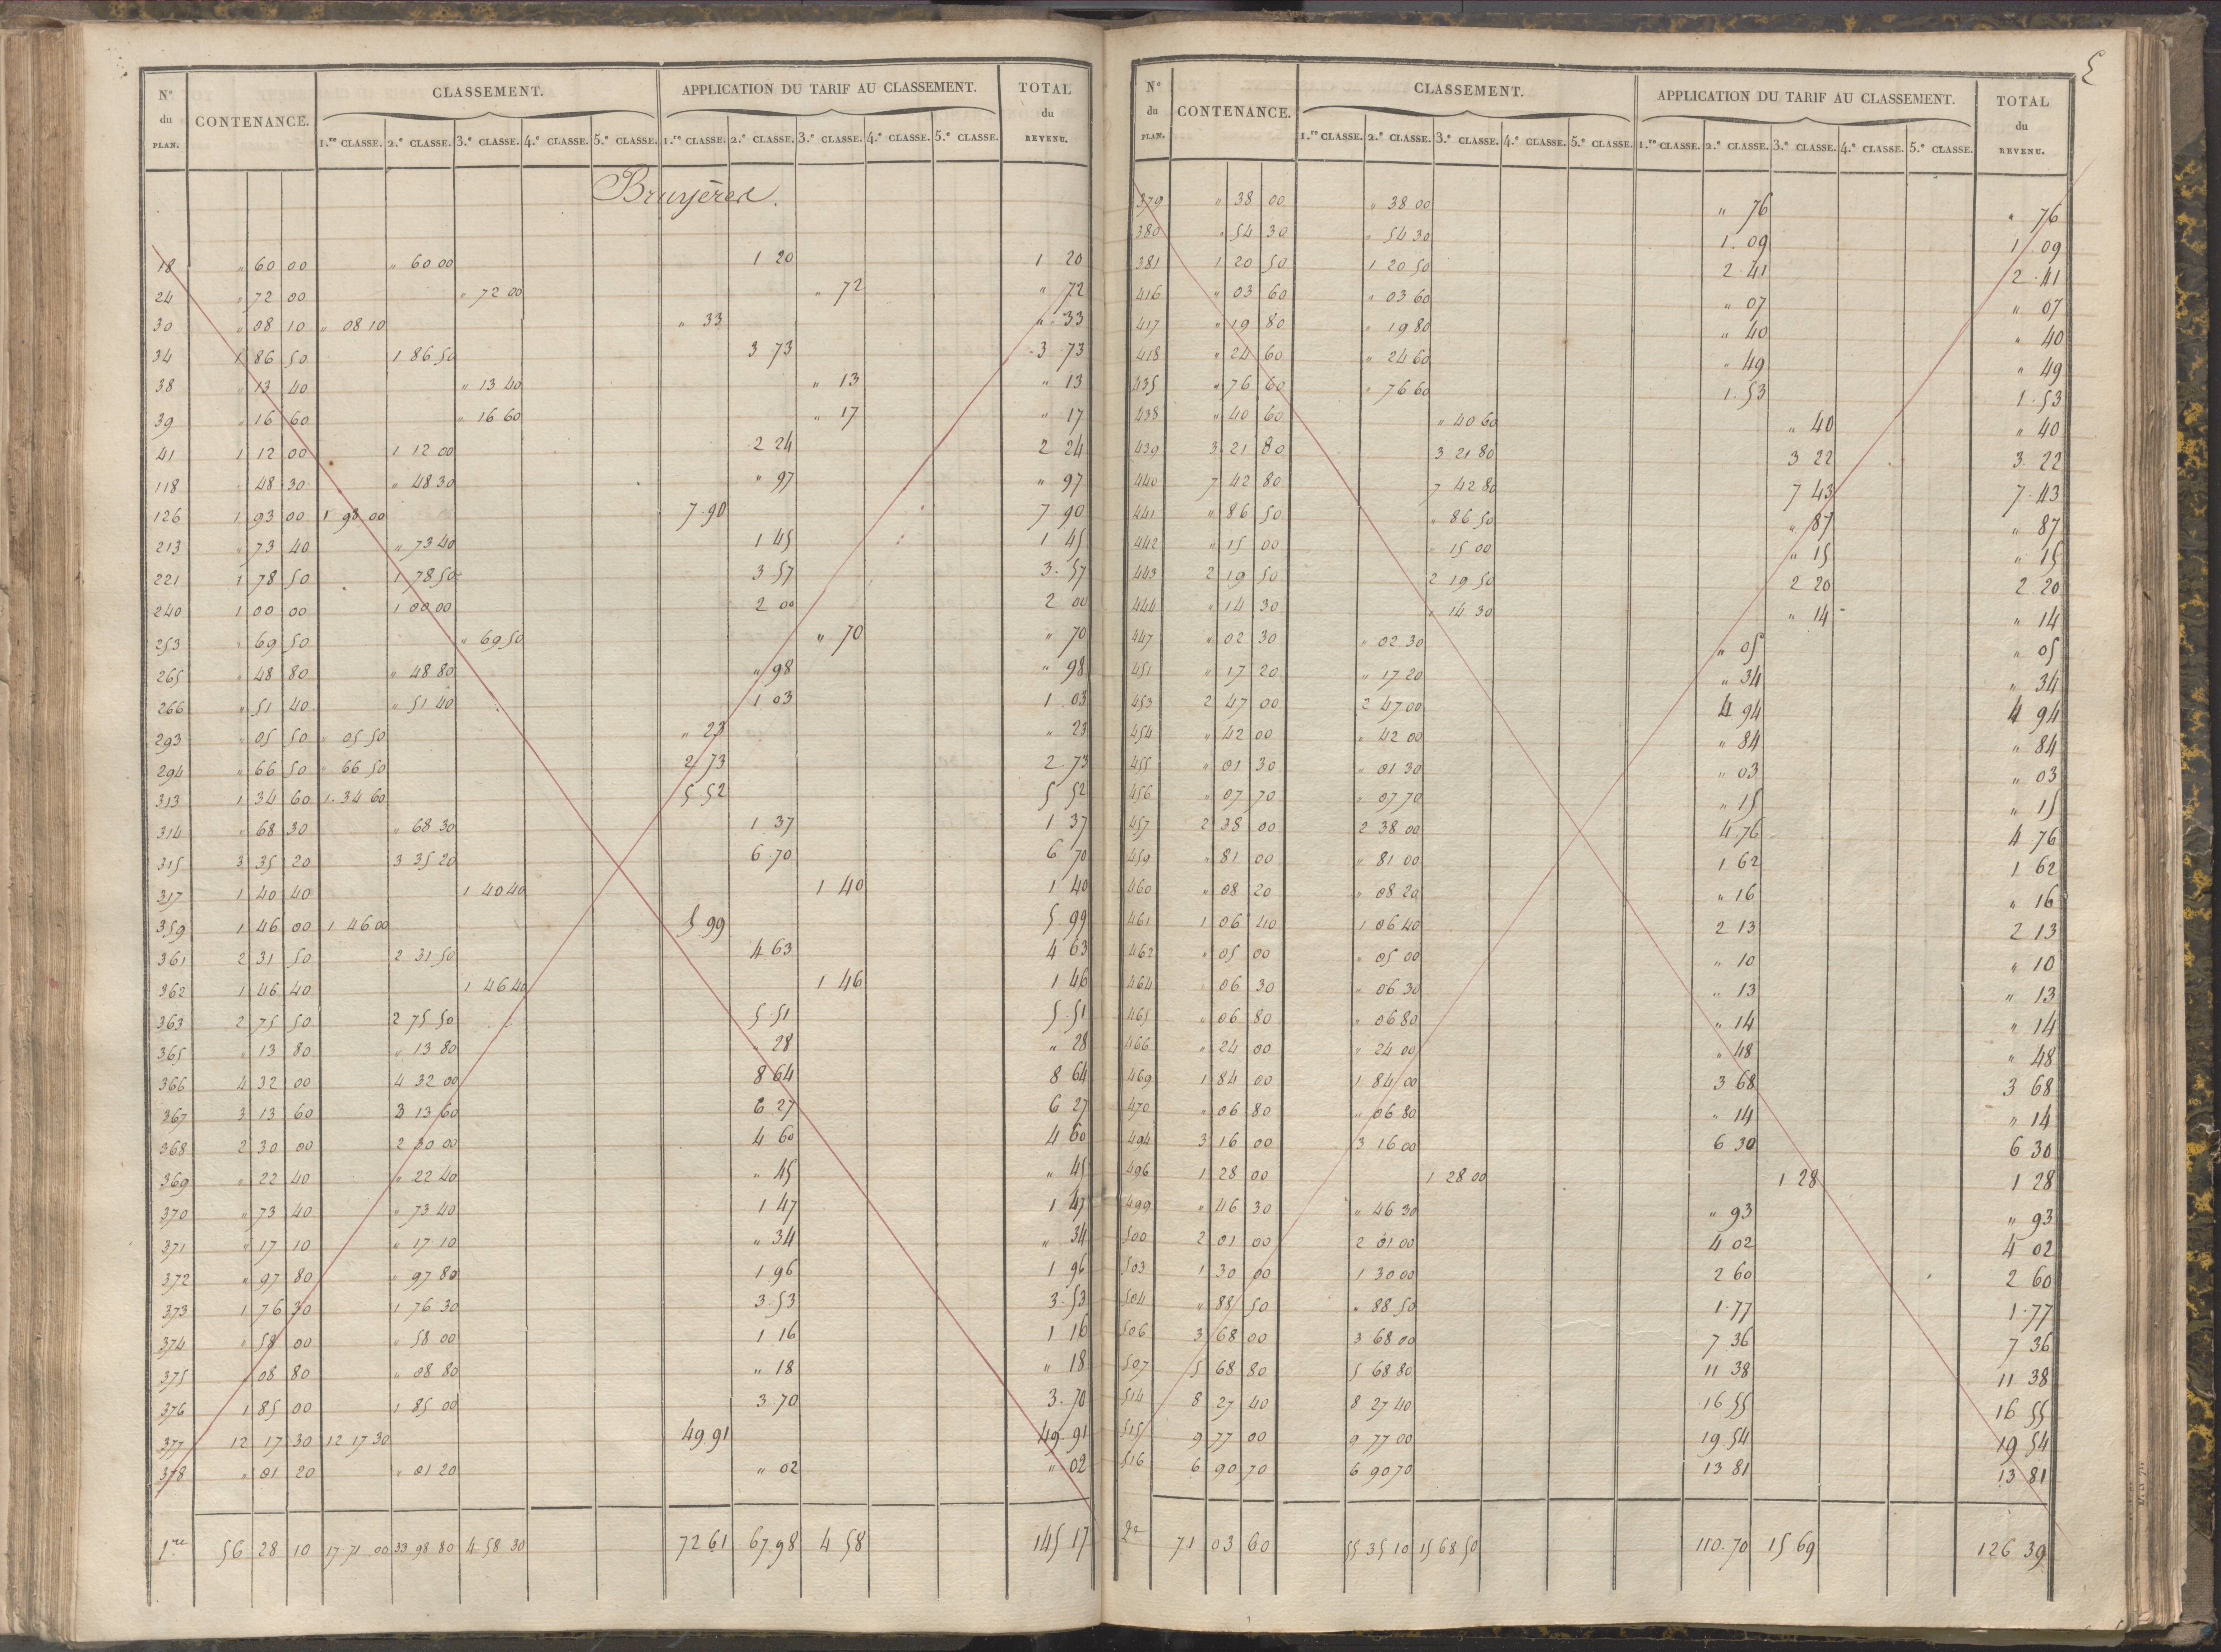 N.º du PLAN. CONTENANCE. CLASSEMENT. APPLICATION DU TARIF AU CLASSEMENT. TOTAL du REVENU.
1.re CLASSE. 2.e CLASSE. 3.e CLASSE. 4.e CLASSE. 5.e CLASSE. 1.re CLASSE. 2.e CLASSE. 3.e CLASSE. 4.e CLASSE. 5.e CLASSE.
Bruyères.
18 " 60 00 " 60 00 1 20 1 20
24 " 72 00 " 72 00 " 72 " 72
30 " 08 10 " 08 10 " 33 " 33
34 1 86 50 1 86 50 3 73 3 73
38 " 13 40 " 13 40 " 13 " 13
39 " 16 60 " 16 60 " 17 " 17
41 1 12 00 1 12 00 2 24 2 24
118 " 48 30 " 48 30 " 97 " 97
126 1 93 00 1 93 00 7.90 7 90
213 " 73 40 " 73 40 1 45 1 45
221 1 78 50 1 78 50 3 57 3. 57
240 1 00 00 1 00 00 2 00 2 00
253 " 69 50 " 69 50 " 70 " 70
265 " 48 80 " 48 80 " 98 " 98
266 " 51 40 " 51 40 1 03 1 03
293 " 05 50 " 05 50 " 23 " 23
294 " 66 50 " 66 50 2 73 2 73
313 1 34 60 1. 34 60 5 52 5 52
314 " 68 30 " 68 30 1 37 1 37
315 3 35 20 3 35 20 6.70 6 70
317 1 40 40 1 40 40 1 40 1 40
359 1 46 00 1 46 00 5 99 5 99
361 2 31 50 2 31 50 4 63 4 63
362 1 46 40 1 46 40 1 46 1 46
363 2 75 50 2 75 50 5 51 5 51
365 " 13 80 " 13 80 " 28 " 28
366 4 32 00 4 32 00 8 64 8 64
367 3 13 60 3 13 60 6 27 6 27
368 2 30 00 2 30 00 4 60 4 60
369 " 22 40 " 22 40 " 45 " 45
370 " 73 40 " 73 40 1 47 1 47
371 " 17 10 " 17 10 " 34 " 34
372 " 97 80 " 97 80 1 96 1 96
373 1 76 30 1 76 30 3.53 3.53
374 " 58 00 " 58 00 1 16 1 16
375 " 08 80 " 08 80 " 18 " 18
376 1 85 00 1 85 00 3.70 3.70
377 12 17 30 12 17 30 49 91 49.91
378 " 01 20 " 01 20 " 02 " 02
1re 56 28 10 17.71.00 33 98 80 4 58 30 72 61 67.98 4 58 145 17
N.º du PLAN. CONTENANCE. CLASSEMENT. APPLICATION DU TARIF AU CLASSEMENT. TOTAL du REVENU.
1.re CLASSE. 2.e CLASSE. 3.e CLASSE. 4.e CLASSE. 5.e CLASSE. 1.re CLASSE. 2.e CLASSE. 3.e CLASSE. 4.e CLASSE. 5.e CLASSE.
379 " 38 00 " 38 00 " 76 " 76
380 " 54 30 " 54 30 1. 09 1 09
381 1 20 50 1 20 50 2.41 2.41
416 " 03 60 " 03 60 " 07 " 07
417 " 19 80 " 19 80 " 40 " 40
418 " 24 60 " 24 60 " 49 " 49
435 " 76 60 " 76 60 1.53 1.53
438 " 40 60 " 40 60 " 40 " 40
439 3 21 80 3 21 80 3 22 3. 22
440 7 42 80 7 42 80 7 43 7.43
441 " 86 50 " 86 50 " 87 " 87
442 " 15 00 " 15 00 " 15 " 15
443 2 19 50 2 19 50 2 20 2 20
444 " 14 30 " 14 30 " 14 " 14
447 " 02 30 " 02 30 " 05 " 05
451 " 17 20 " 17 20 " 34 " 34
453 2 47 00 2 47 00 4 94 4 94
454 " 42 00 " 42 00 " 84 " 84
455 " 01 30 " 01 30 " 03 " 03
456 " 07 70 " 07 70 " 15 " 15
457 2 38 00 2 38 00 4.76 4 76
459 " 81 00 " 81 00 1 62 1 62
460 " 08 20 " 08 20 " 16 " 16
461 1 06 40 1 06 40 2 13 2 13
462 " 05 00 " 05 00 " 10 " 10
464 " 06 30 " 06 30 " 13 " 13
465 " 06 80 " 06 80 " 14 " 14
466 " 24 00 " 24 00 " 48 " 48
469 1 84 00 1 84 00 3 68 3 68
470 " 06 80 " 06 80 " 14 " 14
494 3 16 00 3 16 00 6 30 6 30
496 1 28 00 1 28 00 1 28 1 28
499 " 46 30 " 46 30 " 93 " 93
500 2 01 00 2 01 00 4 02 4 02
503 1 30 00 1 30 00 2 60 2 60
504 " 88 50 " 88 50 1.77 1.77
506 3 68 00 3 68 00 7.36 7 36
507 5 68 80 5 68 80 11 38 11 38
514 8 27 40 8 27 40 16 55 16 55
515 9 77 00 9 77 00 19.54 19 54
516 6 90 70 6 90 70 13 81 13 81
2e 71 03 60 55 35 10 15 68 50 110.70 15 69 126 39